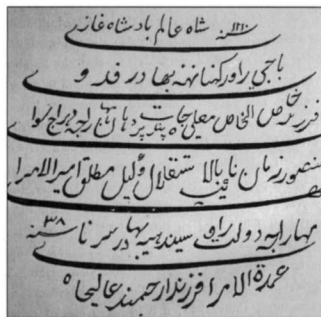 سنه ۱۲۱۰ شاه عالم بادشاه غازی
باجی راو رگهناتهه بهادر فدوی
فرزند خاص الخاص معلی جاه پندت پردهان مهاراجه دهراج سوای
منصور زمان نایب بالاستقلال وکیل مطلق امیر الامرا
مهاراجه دولت راو سیندهیه بهادر سرنا سنه ۳۸
عمدة الامرا فرزند ارجمند عالیجاه